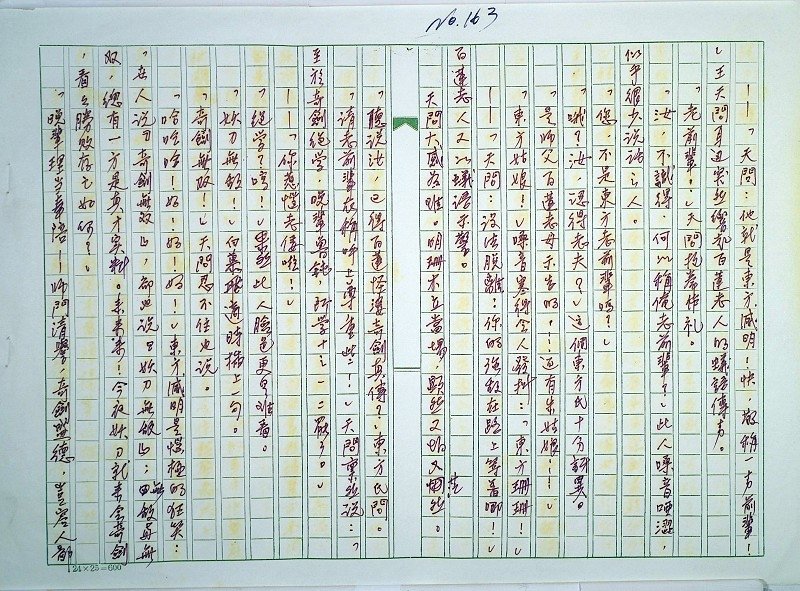 No.163
——「天問:他就是東方滅明!快,敬稱一聲前輩!
」王天問耳邊突然響起百蓮老人的蟻語傳音。
「老前輩。」天問抱拳作禮。
「汝,不識得,何以稱俺老前輩?」此人嗓音啞澀,
似乎很少說話之人。
「您,不是東方老前輩嗎?」
「哦?汝,認得老夫?」這個東方氏十分訝異。
「是師父百蓮老母示告的……還有朱姑娘……」
「東方姑娘!」嗓音寒得令人發抖:「東方珊珊!」
——「天問:設法脫離:你的強敵在路上等着哪!」
百蓮老人又以蟻語示警。
天問大感為難。明珊木立當場,顯然又怕又惘然。
「聽說汝,已得百蓮怪婆奇劍真傳?」東方氏問。
「請老前輩在稱呼上尊重些!」天問稟然說:「
至於奇劍絕學,晚輩魯鈍,所學十之一二罷了。」
——「你惹惱老怪啦!」
「絕學?哼!」果然此人臉色更自難看。
「妖刀無敵!」向東飛適時插上一句。
「奇劍無双!」天問忍不住也說。
「哈哈哈!好!好!好!」東方滅明是懼極的狂笑:
「在人說『奇劍無双』,卻也說『妖刀無敵』:無敵與無
双,總有一方是真才實料。來來來!今夜妖刀就來會奇劍
,看么勝敗存亡如何?」
「晚輩理當奉陪——師門清譽,奇劍盛德,豈容人
24×25=600